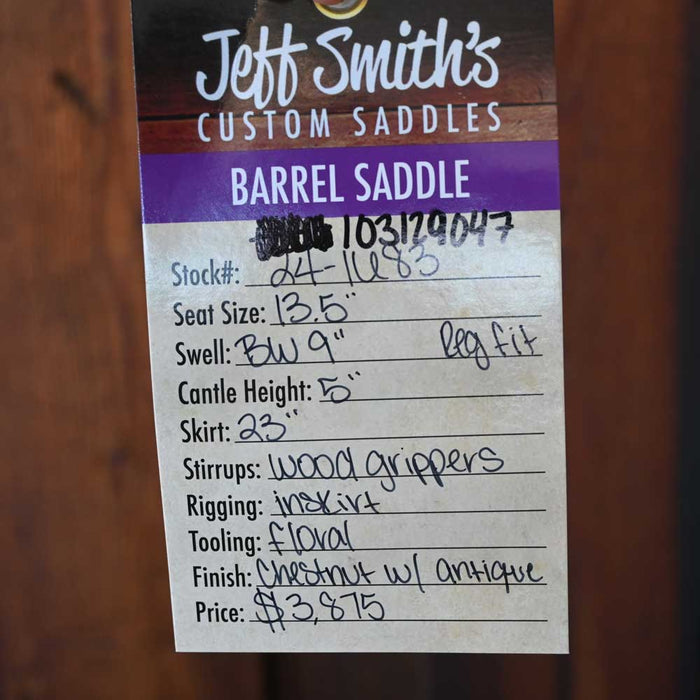 Jeff Smith's
CUSTOM SADDLES
BARREL SADDLE
103129047
Stock#: 24-1683
Seat Size: 13.5"
Swell: BW 9" Reg fit
Cantle Height: 5"
Skirt: 23"
Stirrups: wood grippers
Rigging: inskirt
Tooling: floral
Finish: Chestnut w/ antique
Price: $3,875